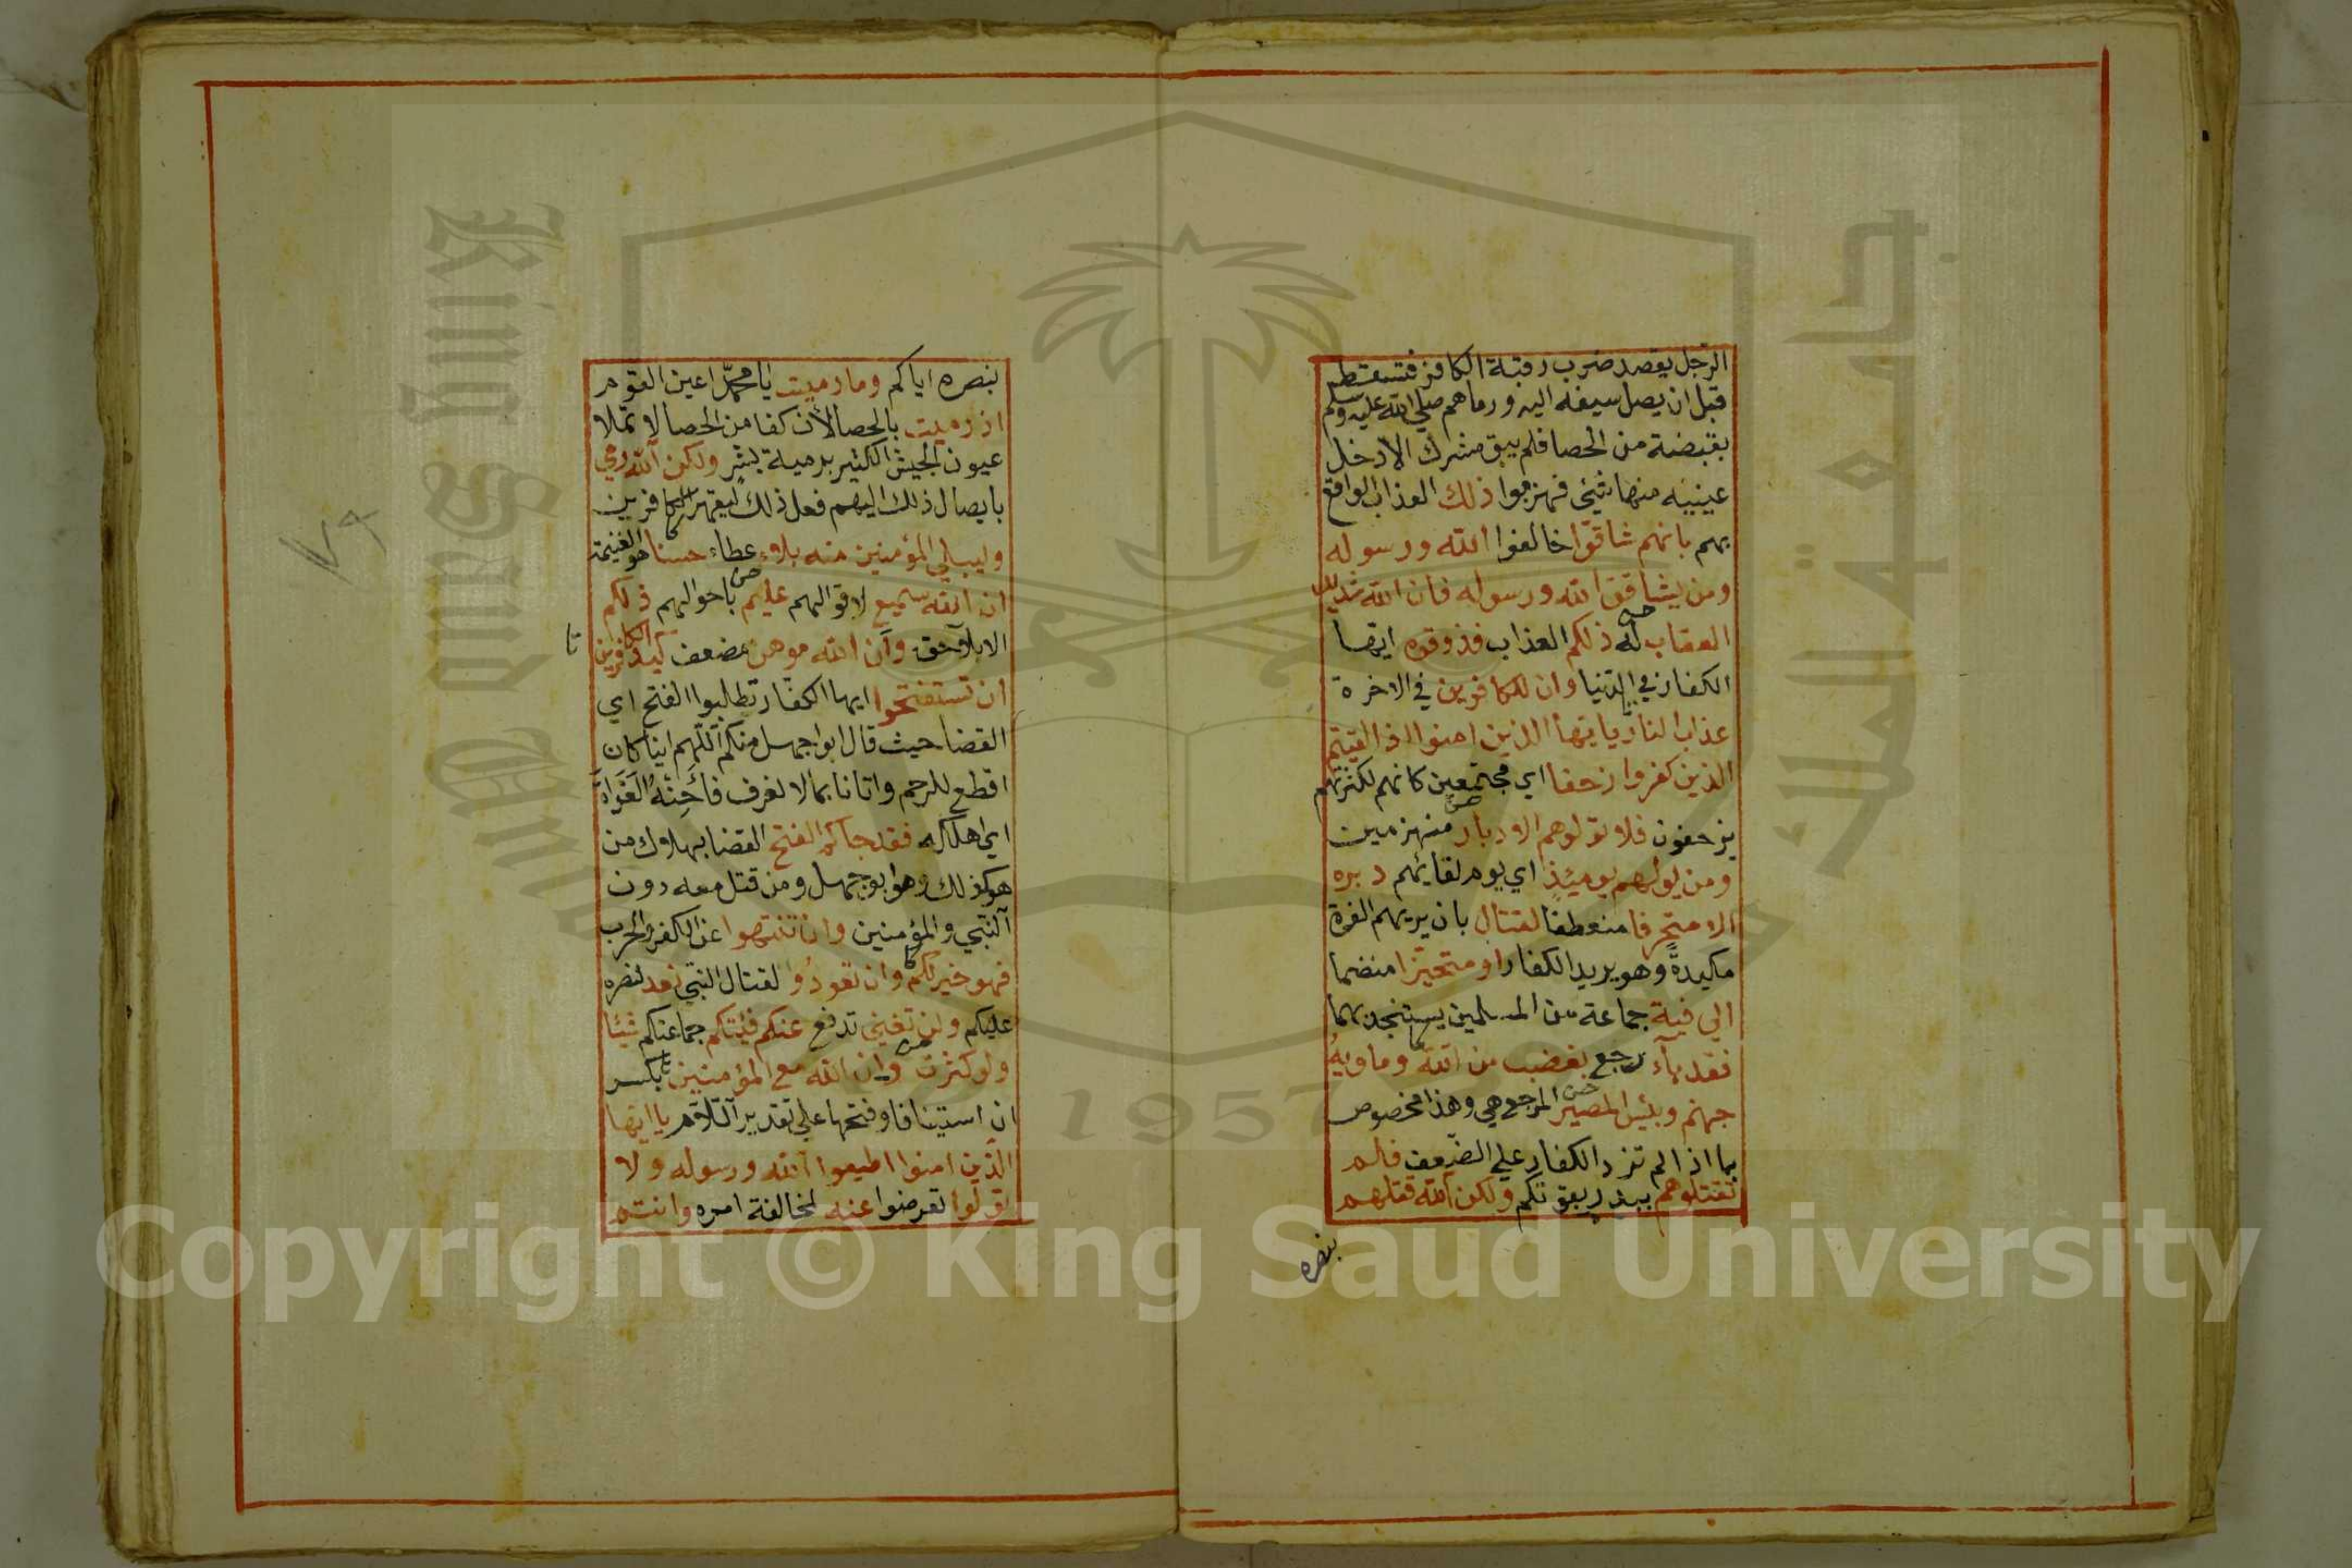 الرّجل يقصد ضرب رقبة الكافر فتسقط
قبل ان يصل سيفه اليه ورماهم صلي الله عليه وسلم
بقبضة من الحصا فلم يبق مشرك الا دخل
عينيه منها شئي فهزموا ذلك العذاب الواقع
بهم بانهم شاقّوا خالفوا الله ورسوله
ومن يشاقق الله ورسوله فان الله شديد
العقاب له ذلكم العذاب فذوقوه ايها
الكفار في الدّنيا وان للكافرين في الاخرة
عذاب النار يايّها الذين امنوا اذا لقيتم
الذين كفروا زحفا اي مجتمعين كانهم لكثرتهم
يزحفون فلا تولوهم الادبار منهزمين
ومن يولهم يوميئذٍ اي يوم لقائهم دبره
الا متحرفا منعطفا لقتال بان يريهم الفرة
مكيدةً وهو يريد الكفار او متحيّزا منضما
الي فية جماعة من المسلمين يستنجد بهما
فقد بآء رجع بغضب من الله وماويهُ
جهنم وبئس المصير المرجع هي وهذا مخصوص
بما اذا لم تزد الكفار علي الضّعف فلم
تقتلوهم ببدر بقوتكم ولكن الله قتلهم
بنصره
بنصره اياكم وما رميت يا محمّد اعين القوم
اذ رميت بالحصا لان كفا من الحصا لا تملا
عيون الجيش الكثير برمية بشر ولكن الله رمي
بايصال ذلك اليهم فعل ذلك ليقهر الكافرين
وليبلي المؤمنين منه بلاء عطاء حسنا هو الغنيمة
ان الله سميع لاقوالهم عليم باحوالهم ذلكم
الابلآحق وَأن الله موهن مضعف كيد الكافرين
ان تستفتحوا ايها الكفّار تطلبوا الفتح اي
القضا حيث قال ابوا جهل منكم اللّهم اينا كان
اقطع للرحم واتانا بمالا نعرف فاَحِنْهُ الغَدَاةَ
اي اهلكه فقد جآكم الفتح القضا بهلاك من
هو كذلك وهو ابوجهل ومن قتل معه دون
النّبي والمؤمنين وان تنتهوا عن الكفر والحرب
فهو خير لكم وان تعودُوا لقتال النّبي نعد لنصره
عليكم ولن تغني تدفع عنكم فئتكم جماعتكم شئا
ولو كثرت وان الله مع المؤمنين بكسر
ان استينافا وفتحها علي تقدير اللّام يا ايها
الذّين امنوا اطيعوا الله ورسوله ولا
تولّوا تعرضوا عنه لمخالفة امره وانتم
٧٩
جامعة الملك سعود
King Saud University
1957
Copyright © King Saud University